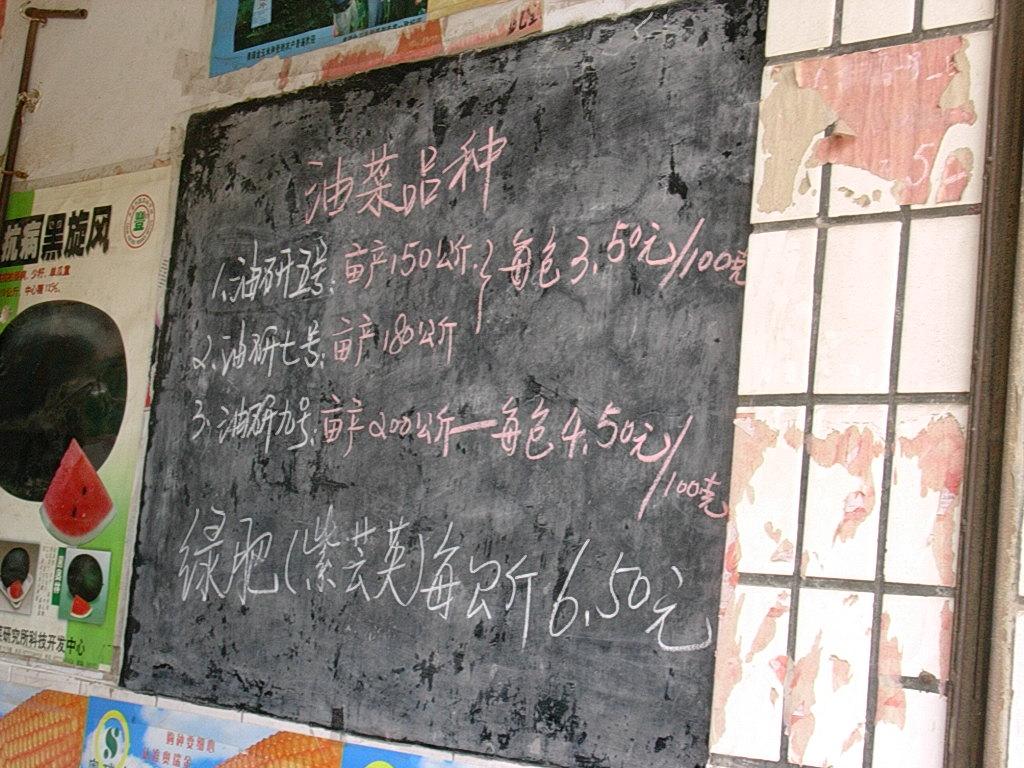 油菜品种
1.油研五号:亩产150公斤}每包3.50元/100克
2.油研七号:亩产180公斤
3.油研九号:亩产200公斤—每包4.50元/100克
绿肥(紫芸英)每公斤6.50元
抗病黑旋风
研究所科技开发中心
购种要细心